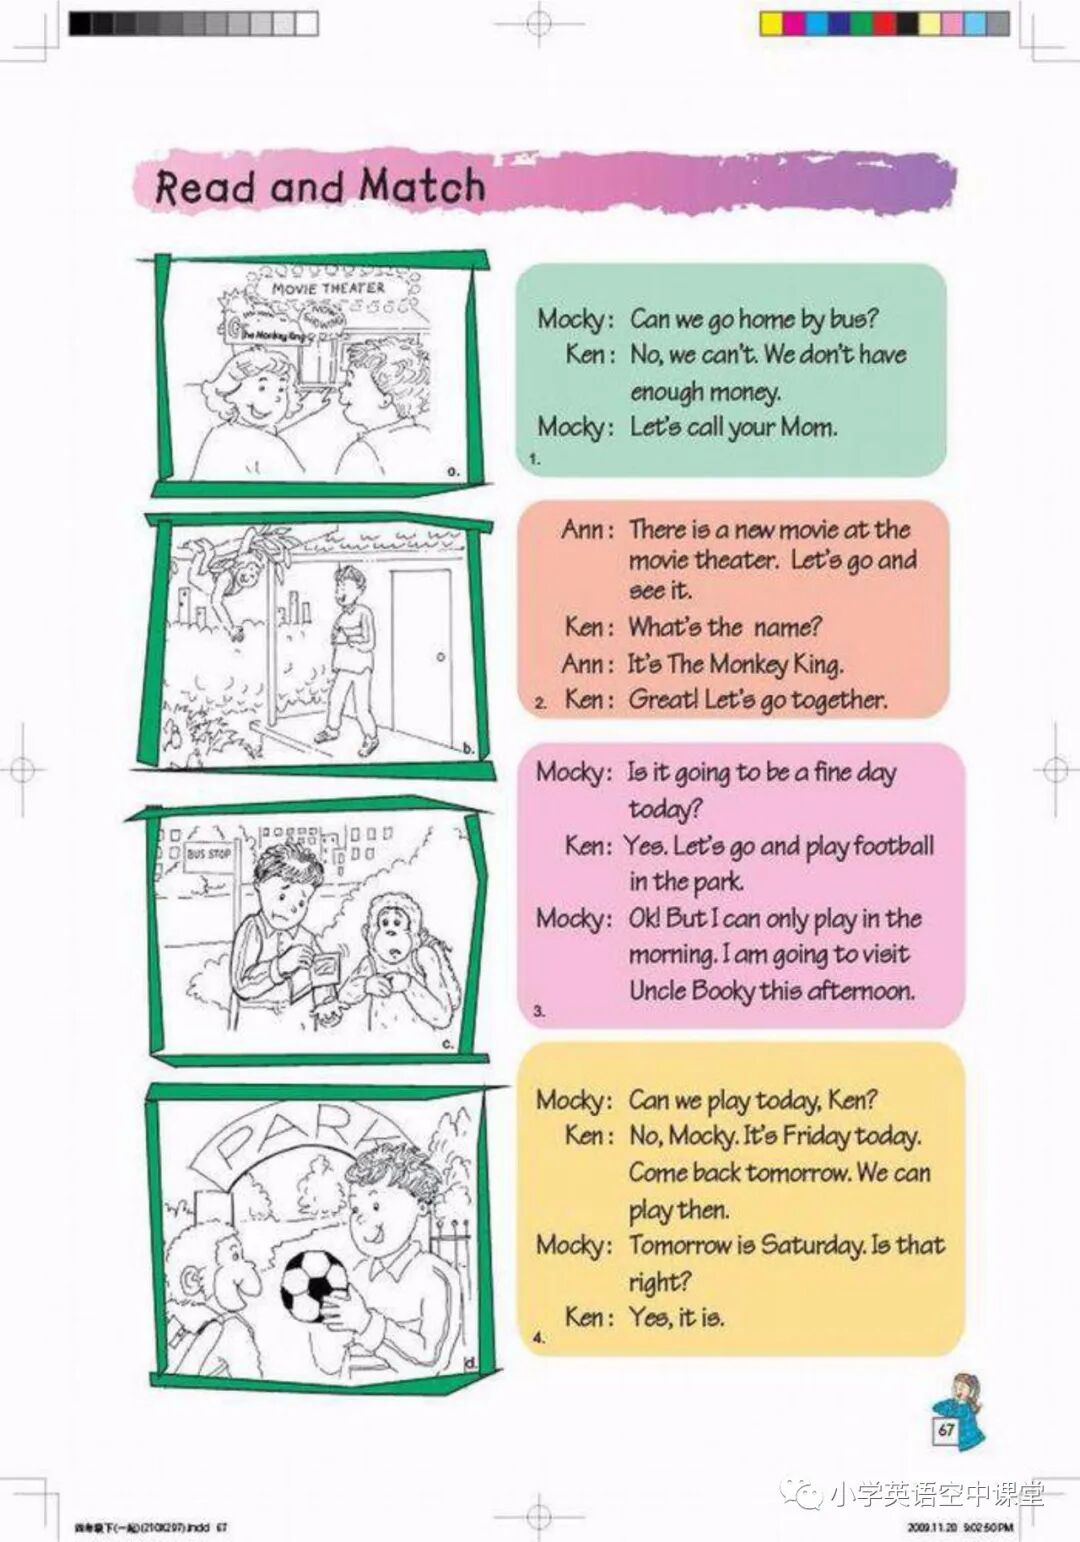 Read and Match
MOVIE THEATER
NOW SHOWING
The Monkey King
a.
Mocky: Can we go home by bus?
Ken: No, we can't. We don't have
enough money.
Mocky: Let's call your Mom.
1.
b.
Ann: There is a new movie at the
movie theater. Let's go and
see it.
Ken: What's the name?
Ann: It's The Monkey King.
2. Ken: Great! Let's go together.
BUS STOP
c.
Mocky: Is it going to be a fine day
today?
Ken: Yes. Let's go and play football
in the park.
Mocky: Ok! But I can only play in the
morning. I am going to visit
Uncle Booky this afternoon.
3.
PARK
d.
Mocky: Can we play today, Ken?
Ken: No, Mocky. It's Friday today.
Come back tomorrow. We can
play then.
Mocky: Tomorrow is Saturday. Is that
right?
Ken: Yes, it is.
4.
67
小学英语空中课堂
四年级下(一起)(210X297).indd 67
2009.11.20 9:02:50 PM